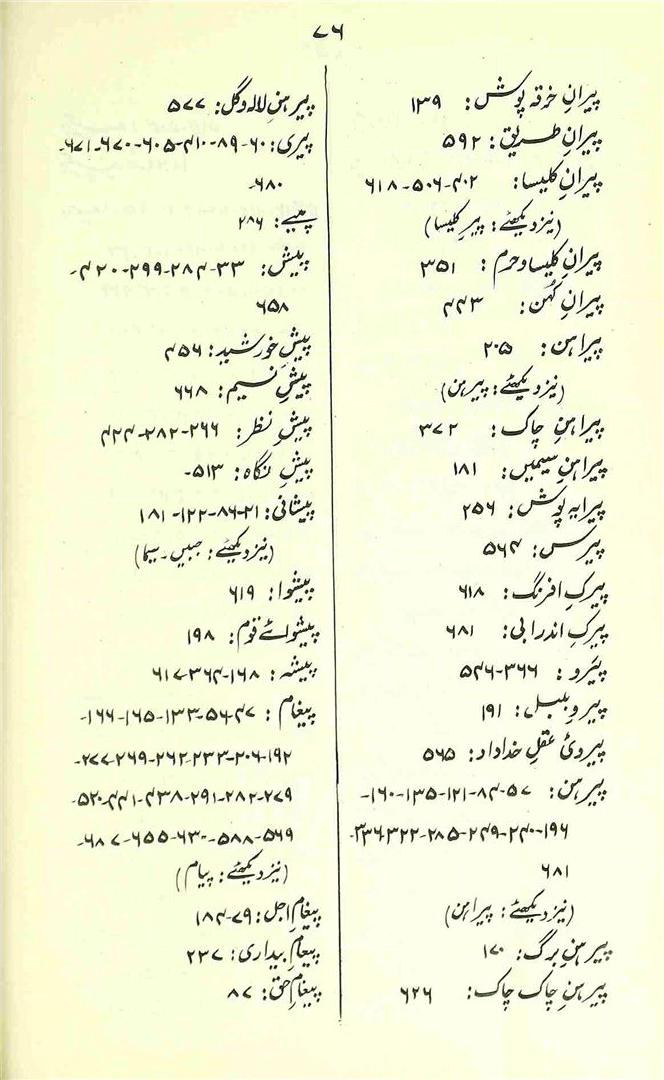 ۷۶
پیرانِ خرقہ پوش: ۱۳۹
پیرانِ طریق: ۵۹۲
پیرانِ کلیسا: ۴۰۲-۵۰۶-۶۱۸
(نیز دیکھئے: پیرِ کلیسا)
پیرانِ کلیسا و حرم: ۳۵۱
پیرانِ کہُن: ۴۴۳
پیراہن: ۲۰۵
(نیز دیکھئے: پیرہن)
پیراہنِ چاک: ۳۷۲
پیراہنِ سیمیں: ۱۸۱
پیرایہ پوش: ۲۵۶
پیرس: ۵۶۴
پیرکِ افرنگ: ۶۱۸
پیرکِ اندرابی: ۶۸۱
پیَرو: ۳۶۶-۵۴۶
پیروِ بلبل: ۱۹۱
پیروئ عقلِ خداداد: ۵۶۵
پیرہن: ۵۷-۸۴-۱۲۱-۱۳۵-۱۶۰-
۱۹۶-۲۴۰-۲۴۹-۲۸۵-۳۲۲-۳۳۶-
۶۸۱
(نیز دیکھئے: پیراہن)
پیرہنِ برگ: ۱۷۰
پیرہنِ چاک چاک: ۶۲۶
پیرہنِ لالہ و گل: ۵۷۷
پیری: ۶۰-۸۹-۴۱۰-۶۰۵-۶۷۰-۶۷۱-
۶۸۰-
پیسے: ۲۸۶
پیش: ۳۳-۲۸۴-۲۹۹-۴۲۰-
۶۵۸
پیشِ خورشید: ۴۵۶
پیشِ نسیم: ۶۶۸
پیشِ نظر: ۲۶۶-۲۸۲-۴۲۴
پیشِ نگاہ: ۵۱۳-
پیشانی: ۲۱-۸۶-۱۲۲-۱۸۱
(نیز دیکھئے: جبیں۔سیما)
پیشوا: ۶۱۹
پیشوائے قوم: ۱۹۸
پیشہ: ۱۶۸-۳۶۴-۶۱۷
پیغام: ۴۷-۵۶-۱۳۳-۱۶۵-۱۶۶-
۱۹۲-۲۰۶-۲۳۳-۲۶۲-۲۶۹-۲۷۷-
۲۷۹-۲۸۲-۲۹۱-۴۳۸-۴۴۱-۵۲۰-
۵۶۹-۵۸۸-۶۳۰-۶۵۵-۶۸۷-
(نیز دیکھئے: پیام)
پیغامِ اجل: ۷۹-۱۸۴
پیغامِ بیداری: ۲۳۷
پیغامِ حق: ۸۷